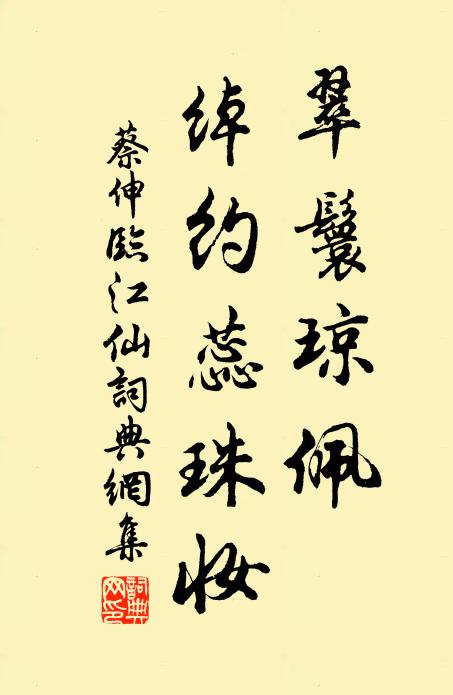 翠鬟琼佩
绰约蕊珠妆
蔡伸臨江仙詞典網集
詞典网印